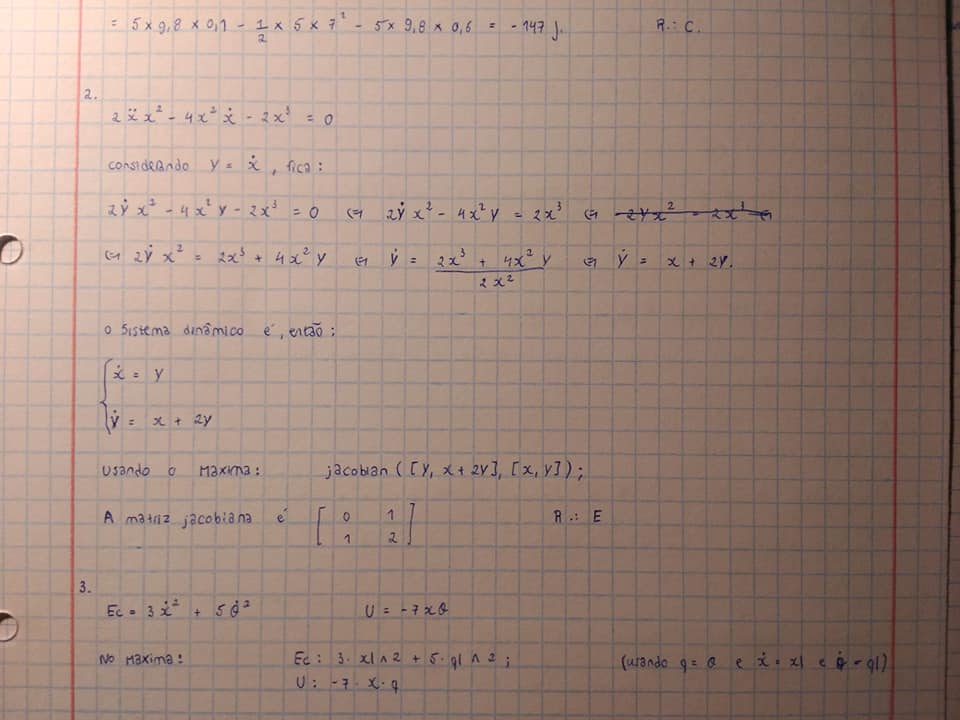 = 5 x 9,8 x 0,1 - 1/2 x 5 x 7² - 5 x 9,8 x 0,6 = - 147 J. R.: C.
2.
2ẍx² - 4x²ẋ - 2x³ = 0
considerando y = ẋ, fica:
2ẏx² - 4x²y - 2x³ = 0 ⇔ 2ẏx² - 4x²y = 2x³ ⇔ 2yx² = 2x³ ⇔
⇔ 2ẏx² = 2x³ + 4x²y ⇔ ẏ = (2x³ + 4x²y)/2x² ⇔ ẏ = x + 2y.
O sistema dinâmico é, então:
ẋ = y
ẏ = x + 2y
Usando o Maxima: jacobian ([y, x+2y], [x, y]);
A matriz jacobiana é [0 1
1 2] R.: E
3.
Ec = 3ẋ² + 5θ̇² U = -7xθ
No Maxima: Ec: 3·x1^2 + 5·q1^2; (usando q = θ e ẋ = x1 e q̇ = q1)
U: -7·x·q